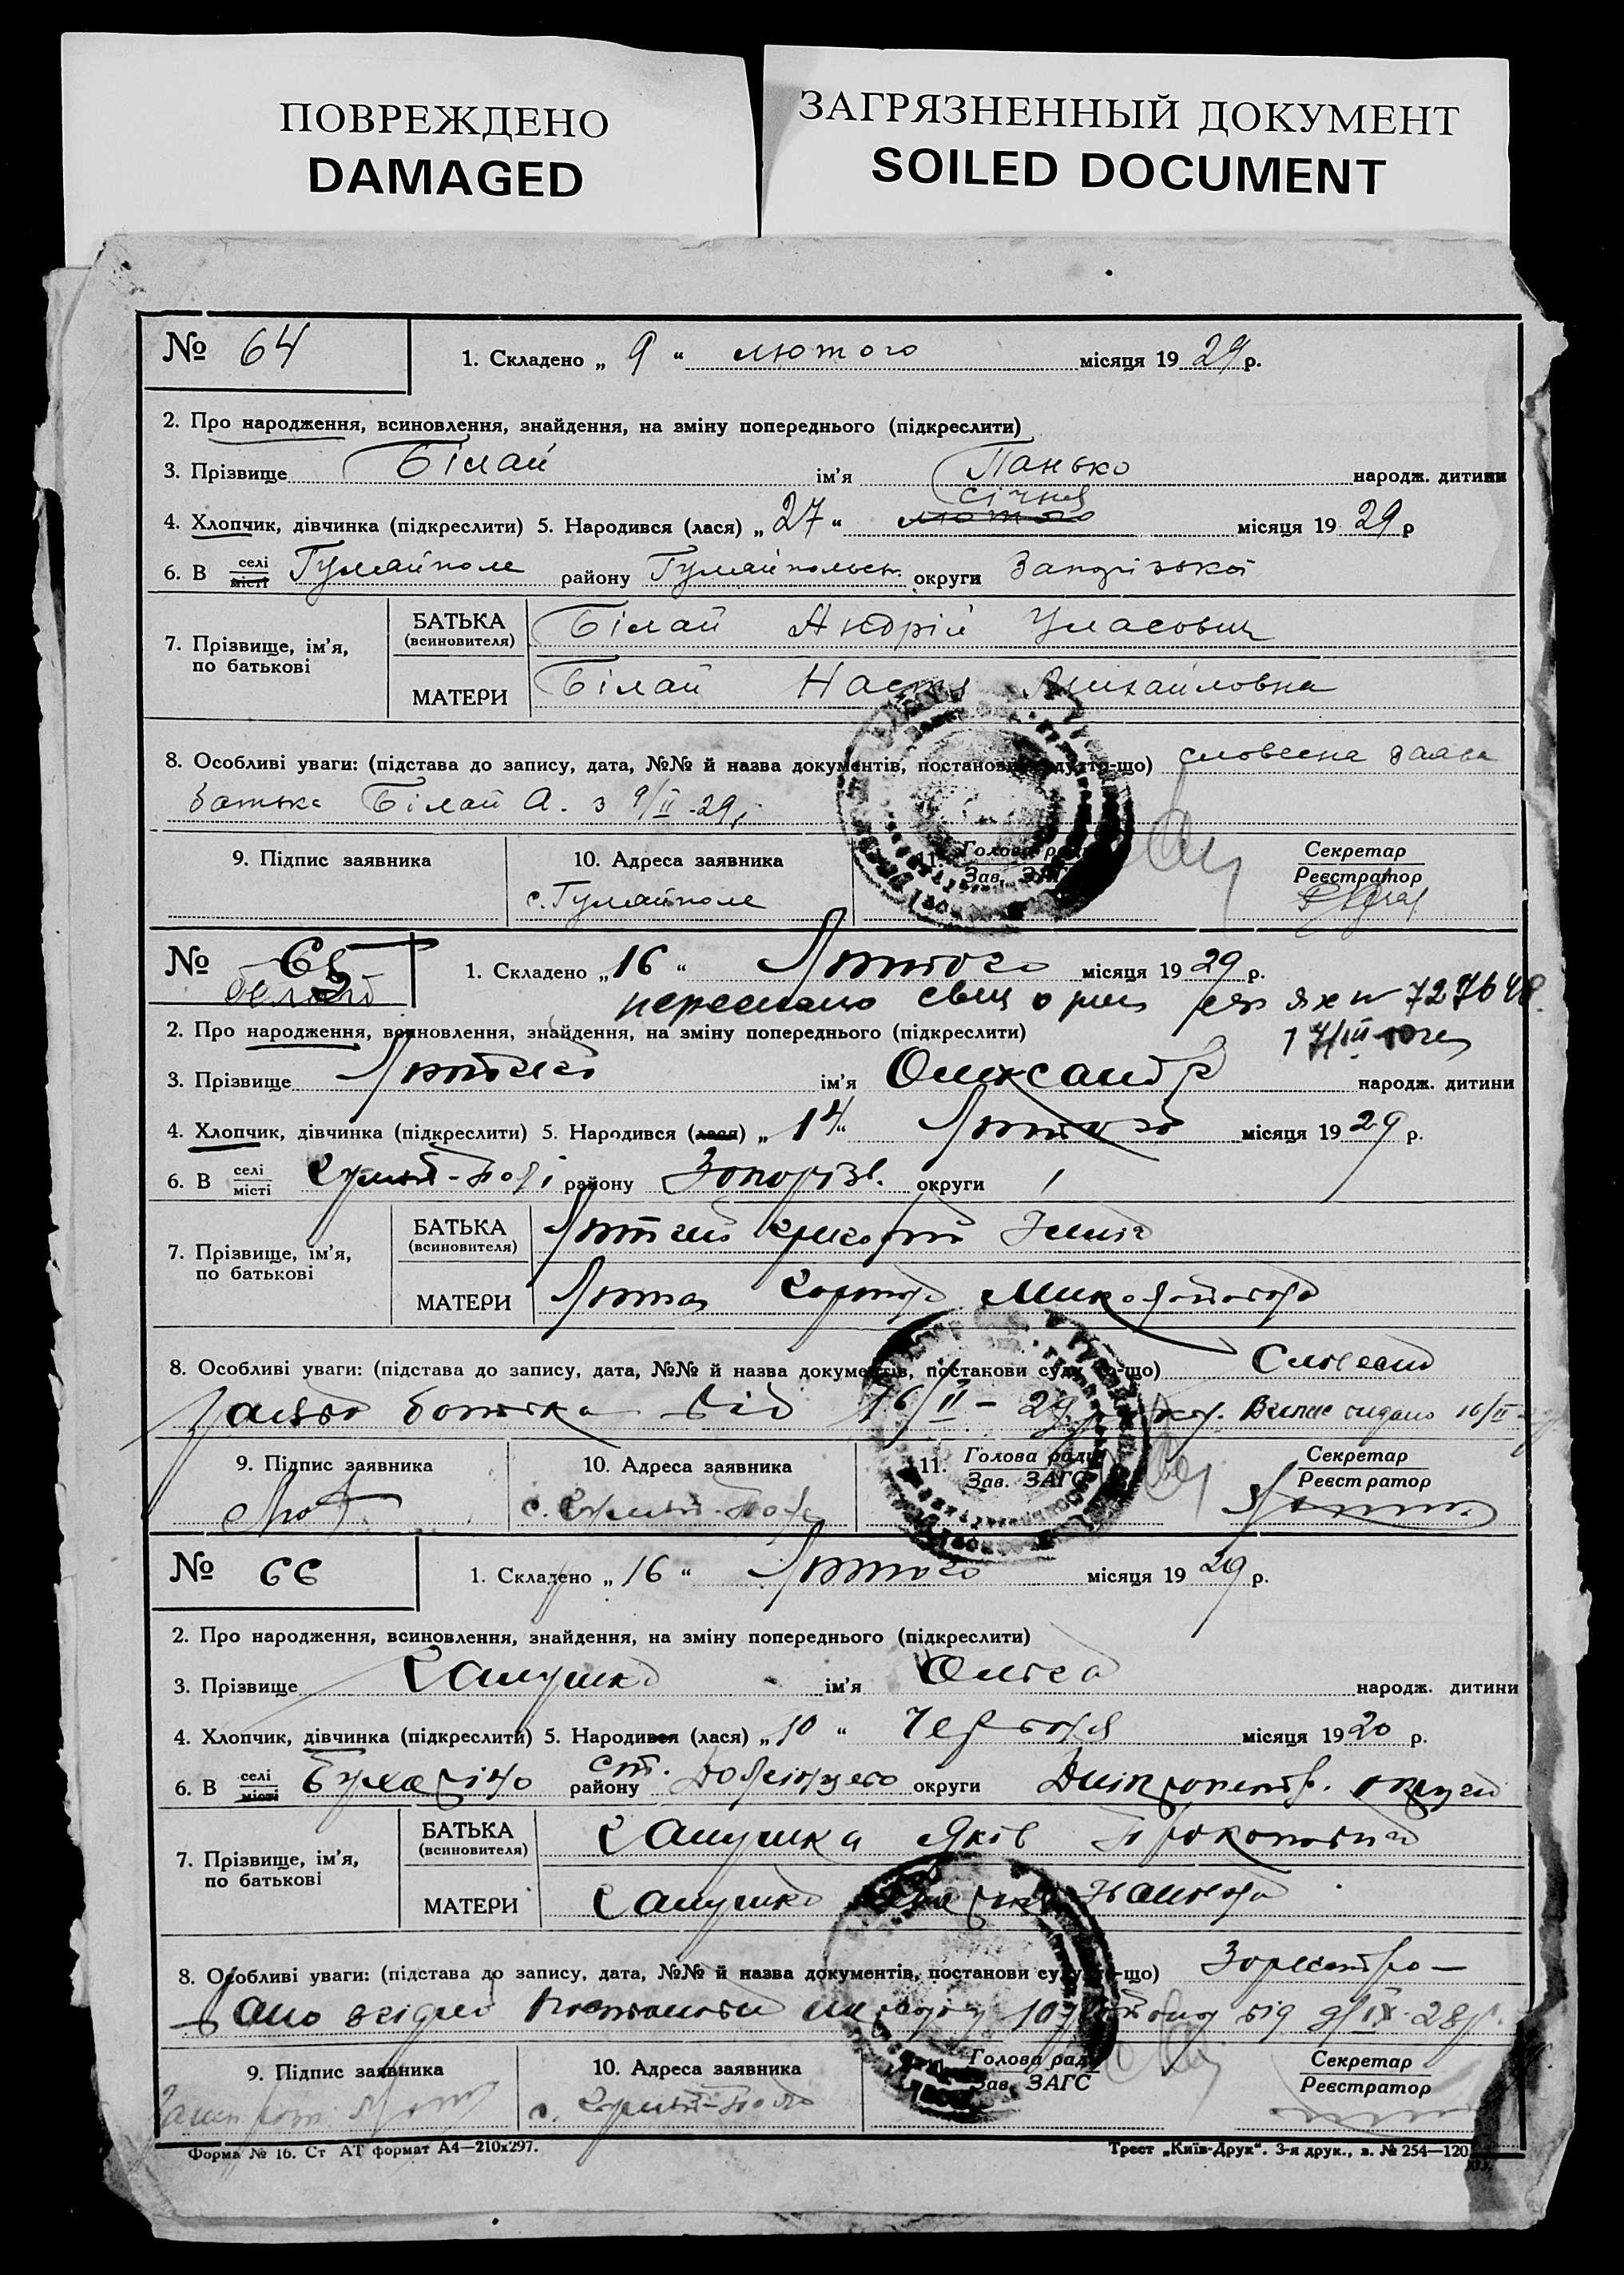 ПОВРЕЖДЕНО
DAMAGED
ЗАГРЯЗНЕННЫЙ ДОКУМЕНТ
SOILED DOCUMENT
№ 64 1. Складено „ 9 “ лютого місяця 1929 р.
2. Про народження, всиновлення, знайдення, на зміну попереднього (підкреслити)
3. Прізвище Білай ім’я Панько народж. дитини
січня
4. Хлопчик, дівчинка (підкреслити) 5. Народився (лася) „ 27 “ лютого місяця 1929 р
6. В селі місті Гуляйполе району Гуляйпольськ. округи Запорізької
7. Прізвище, ім’я, по батькові
БАТЬКА (всиновителя) Білай Андрій Уласович
МАТЕРИ Білай Настя Михайловна
8. Особливі уваги: (підстава до запису, дата, №№ й назва документів, постанови суду то-що) словесна заява
батька Білай А. з 9/II-29
9. Підпис заявника 10. Адреса заявника 11. Голова ради Зав. ЗАГС Секретар Реєстратор
с. Гуляйполе
№ 65 1. Складено „ 16 “ Лютого місяця 1929 р.
727648
2. Про народження, всиновлення, знайдення, на зміну попереднього (підкреслити)
3. Прізвище Лютий ім’я Олександр народж. дитини
4. Хлопчик, дівчинка (підкреслити) 5. Народився (лася) „ 14 “ Лютого місяця 1929 р.
6. В селі місті Гуляй-Полі району Запоріз. округи
7. Прізвище, ім’я, по батькові
БАТЬКА (всиновителя) Лютий
МАТЕРИ Люта Миколаївна
8. Особливі уваги: (підстава до запису, дата, №№ й назва документів, постанови суду то-що) Словесна
заява батька від 16/II-29 Випис видано 16/II
9. Підпис заявника 10. Адреса заявника 11. Голова ради Зав. ЗАГС Секретар Реєстратор
с. Гуляй-Поле
№ 66 1. Складено „ 16 “ Лютого місяця 1929 р.
2. Про народження, всиновлення, знайдення, на зміну попереднього (підкреслити)
3. Прізвище Галушка ім’я Ольга народж. дитини
4. Хлопчик, дівчинка (підкреслити) 5. Народився (лася) „ 10 “ Червня місяця 1920 р.
6. В селі місті району ст. округи Дніпропетр. округи
7. Прізвище, ім’я, по батькові
БАТЬКА (всиновителя) Галушка Яків Прокопович
МАТЕРИ Галушка Івановна
8. Особливі уваги: (підстава до запису, дата, №№ й назва документів, постанови суду то-що) Зареєстро-
вано згідно постанови від IX-28р.
9. Підпис заявника 10. Адреса заявника Голова ради Зав. ЗАГС Секретар Реєстратор
с. Гуляй-Поле
Форма № 16. Ст АТ формат А4—210х297.
Трест „Київ-Друк“. 3-я друк., з. № 254—120